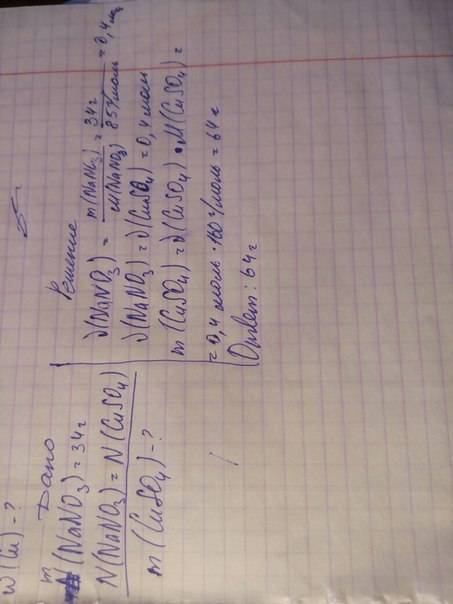 W(Cu) - ?
Дано
m(NaNO3) = 34г
N(NaNO3) = N(CuSO4)
m(CuSO4) - ?
Решение
ν(NaNO3) = m(NaNO3) / M(NaNO3) = 34г / 85г/моль = 0,4 моль
ν(NaNO3) = ν(CuSO4) = 0,4 моль
m(CuSO4) = ν(CuSO4) • M(CuSO4) =
= 0,4 моль · 160 г/моль = 64 г
Ответ: 64 г